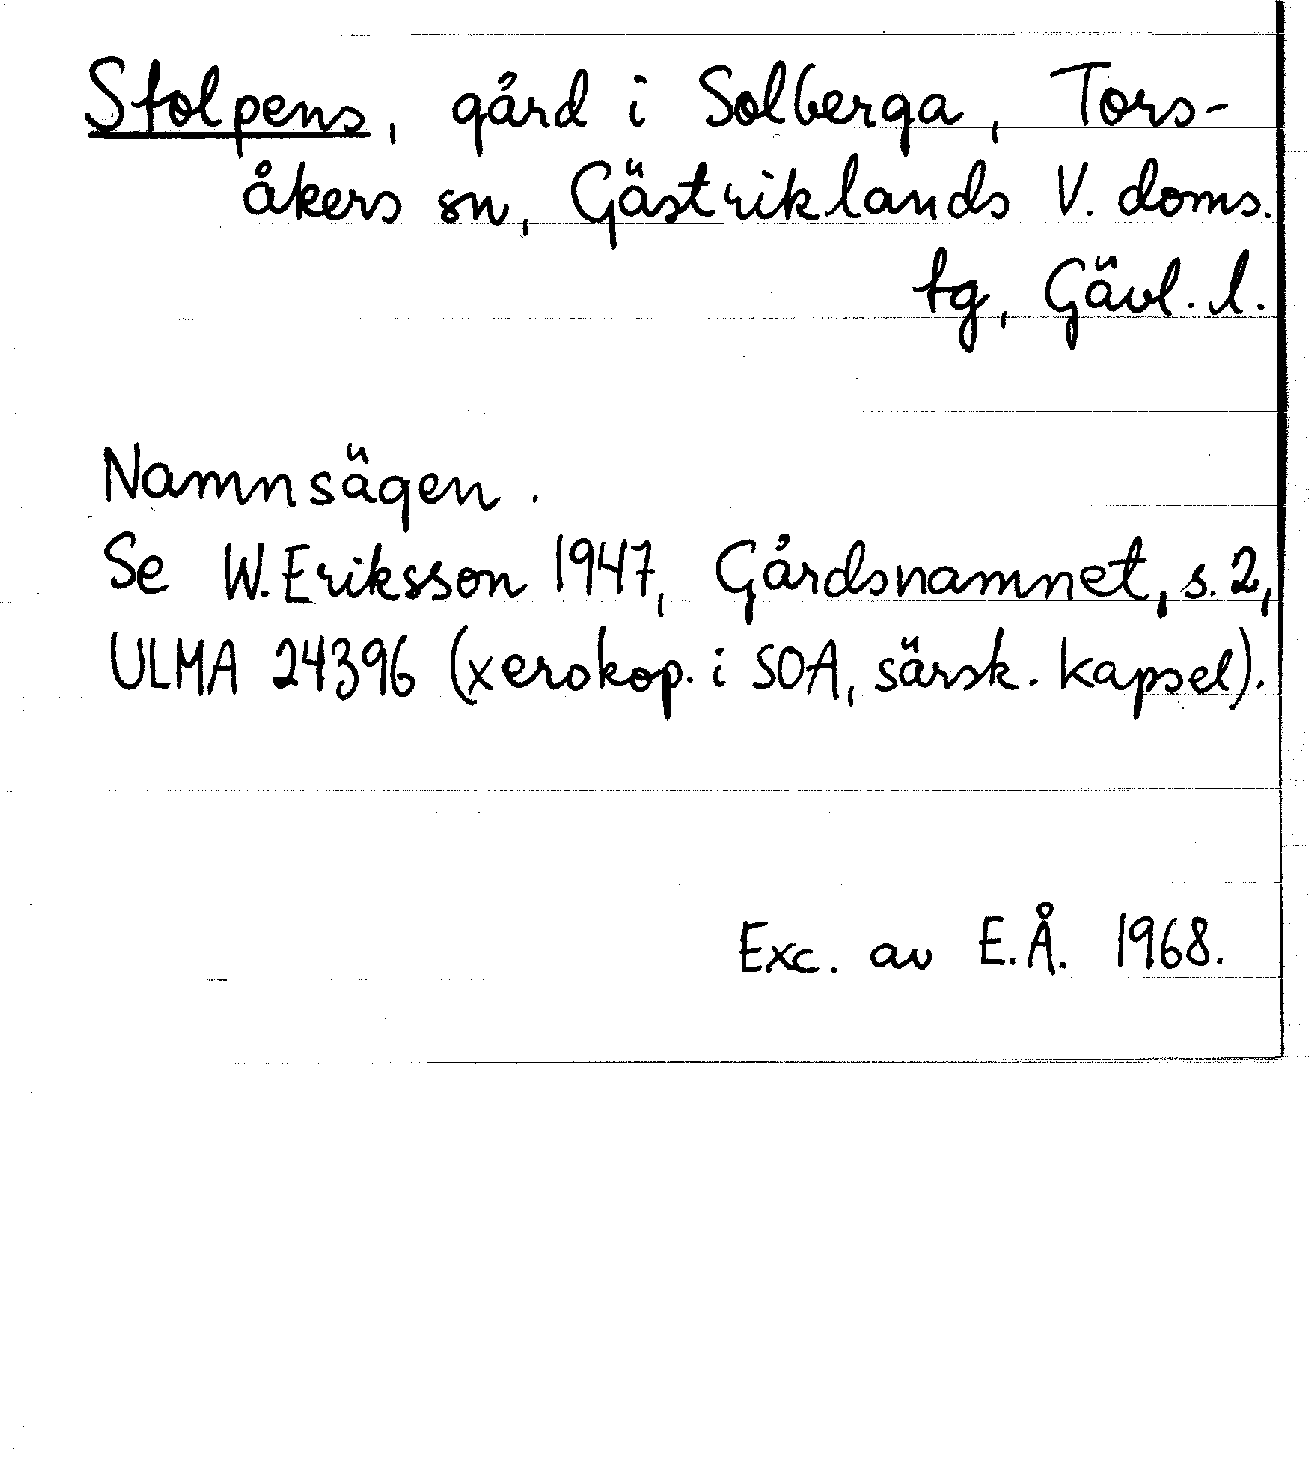 Stolpens, gård i Solberga, Tors-
åkers sn, Gästriklands V. doms.
tg, Gävl. l.
Namnsägen.
Se W. Eriksson 1947, Gårdsnamnet, s. 2,
ULMA 24396 (xerokop. i SOA, särsk. kapsel).
Exc. av E.Å. 1968.